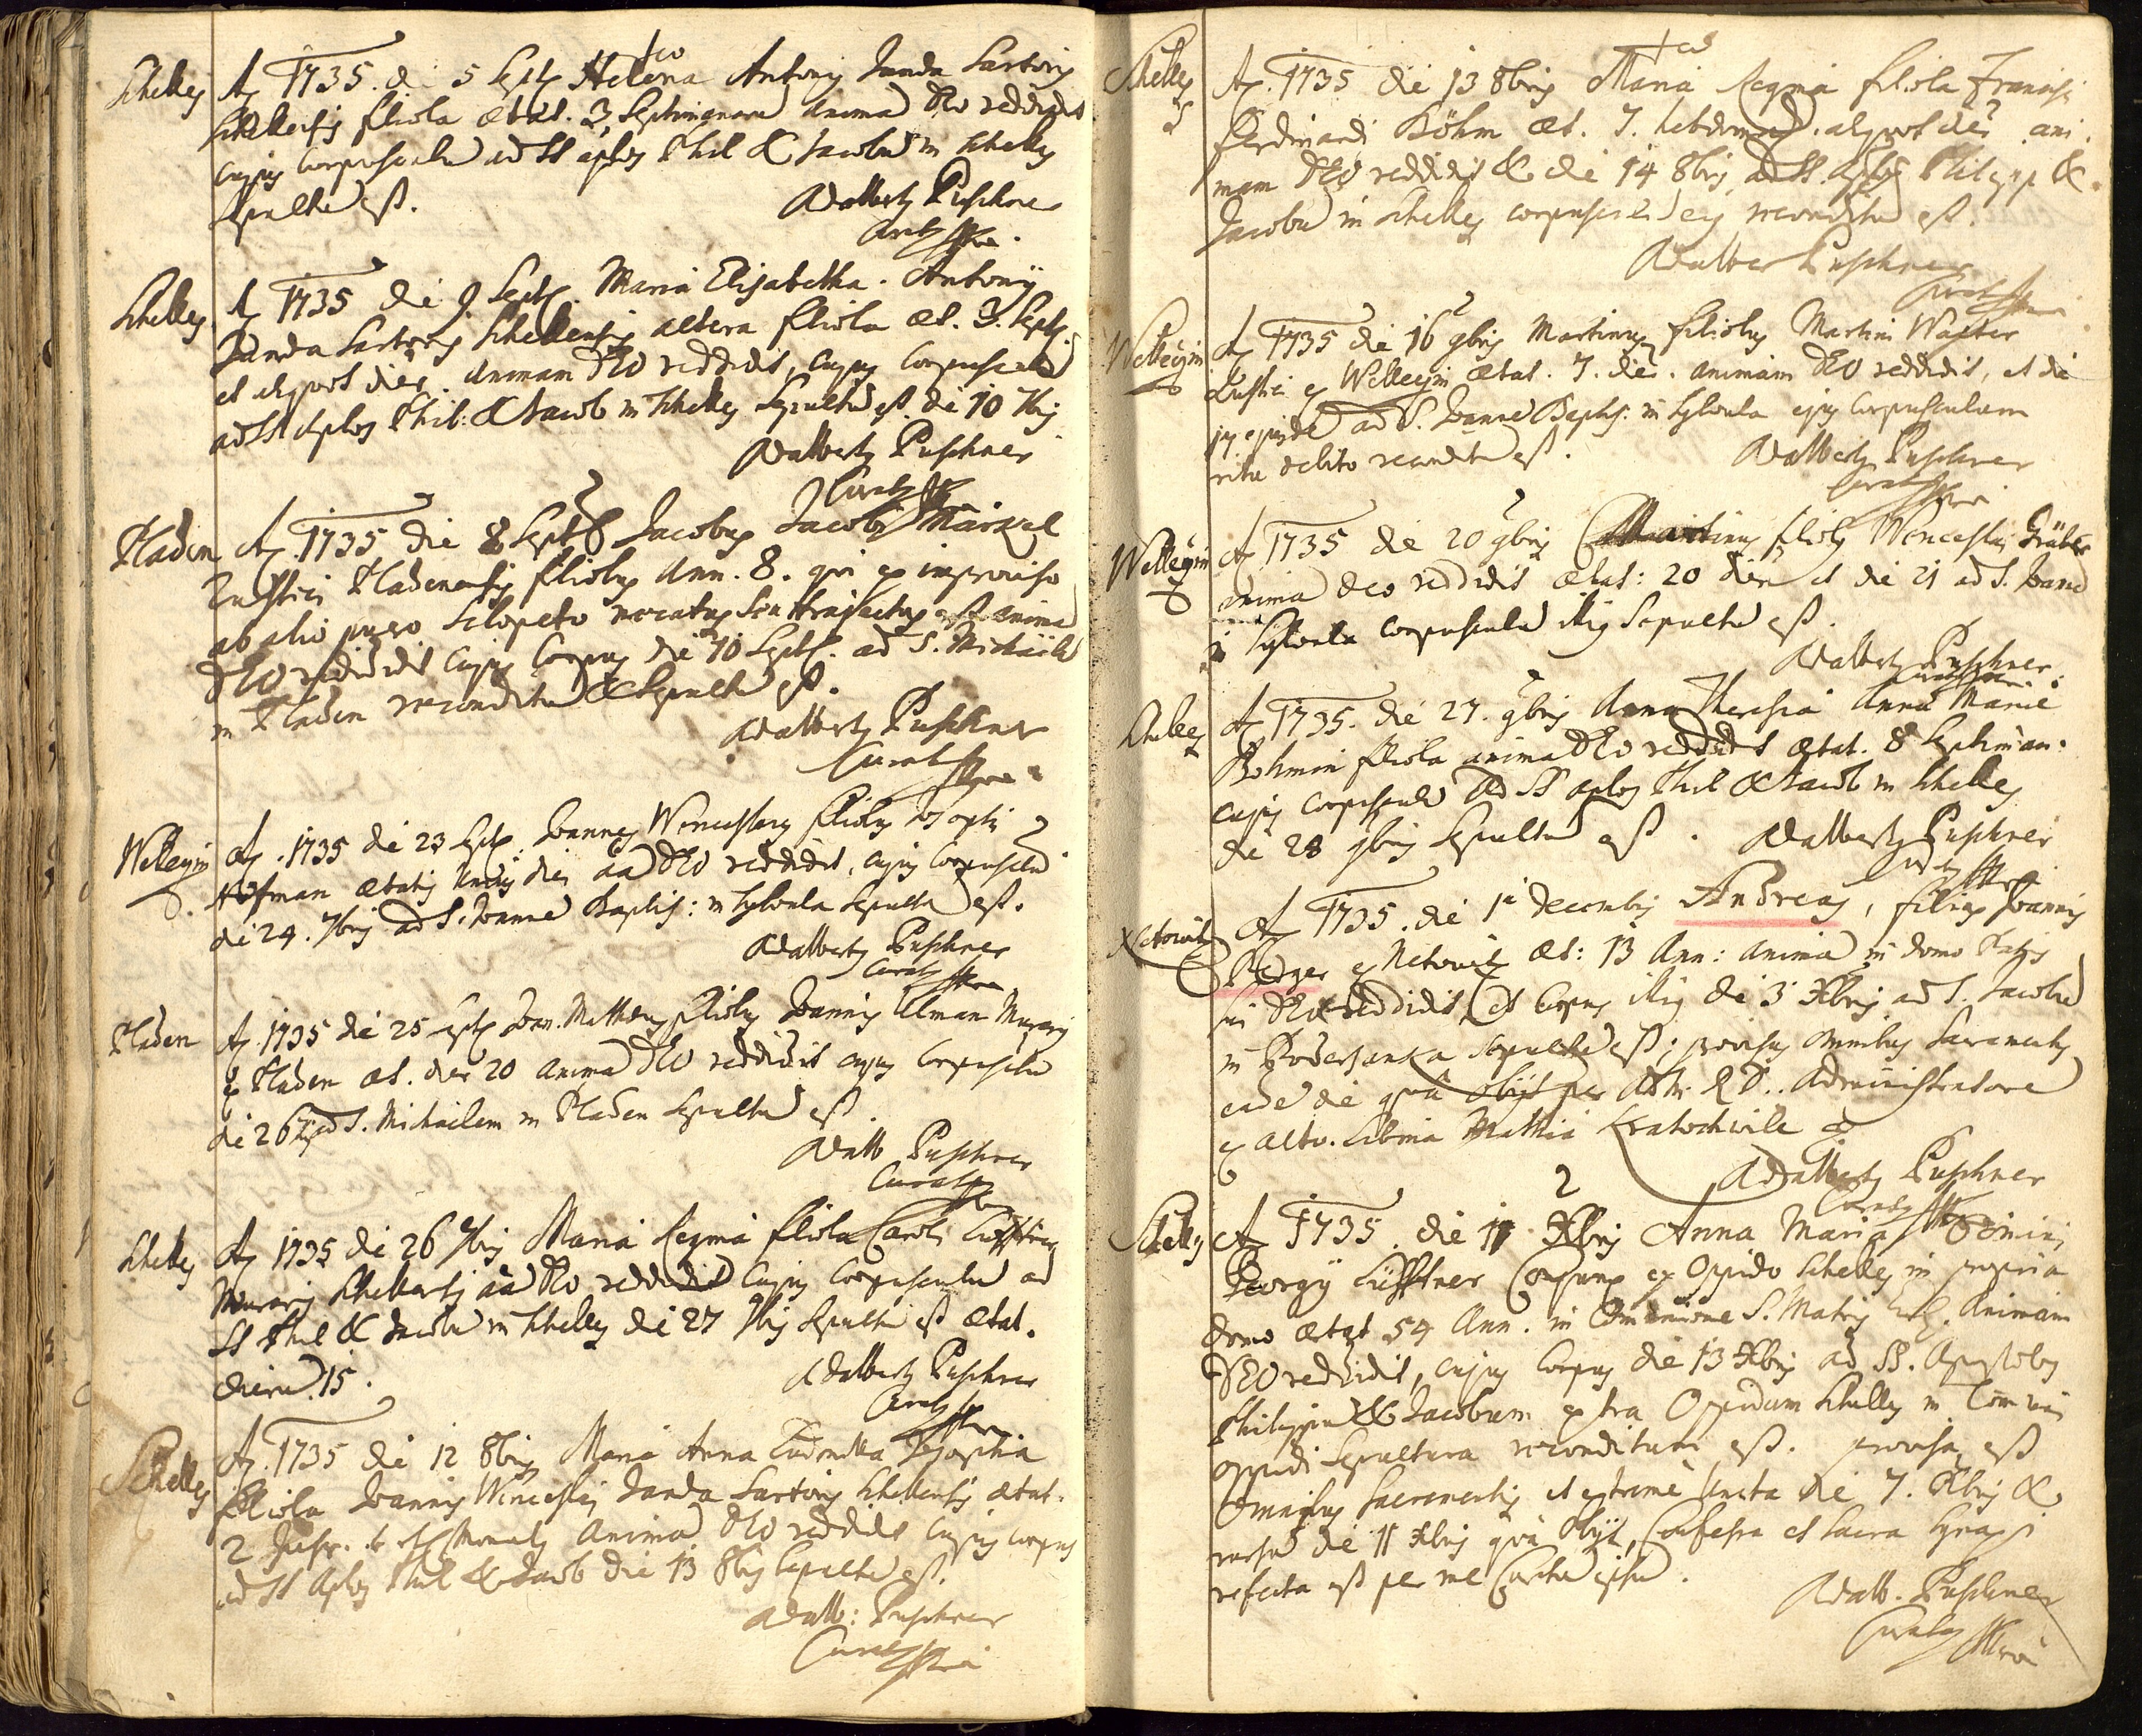 Schelles
A 1735. d. 5 Sept Helena Antony Janda Sartoris
Schellesis filiola ætat. 3 Septimanaru Anima DEO reddidit
cujus Corpusculu ad SS aplos Phil & Jacobu in Schelles
sepultu est.
Adalbert Puschner
Curat
Schelles
A 1735 die 9. Sept. Maria Elisabetha. Antony
Janda Sartoris Schellensis altera filiola æt. 3. Sept.
et aliquot dier. Animam DEO reddidit, cujus Corpusculu
ad SS Aplos Phil: & Jacob in Schelles Sepultu est die 10 7bris
Adalbert Puschner
Curat
Pladen
A. 1735 die 8 Sept Jacobus Jacobi
Rustici Pladenensis filiolus Ann. 8. qui ex improviso
ab alio puero Sclopeto trajectus est anima
DEO reddidit cujus Corpus die 10 Sept. ad S. Michaele
in Pladen reconditu & Sepultu est.
Adalbert Puschner
Curat
Wellegin
A. 1735 die 23 Sept. Joannes Wenceslaus filiolus Josephi
Hofman ætatis unius diei aa DEO reddidit, cujus Corpusculu
die 24. 7bris ad S. Joanne Baptis: in Sylvula Sepultu est.
Adalbert Puschner
Curat
Pladen
A. 1735 die 25 sept Joan. Matheus filiolus Joannis Ulman Murarij
ex Pladen æt. dier 20 anima DEO reddidit cujus Corpusculu
die 26 ad S. Michaelem in Pladen Sepultu est.
Adalb Puschner
Curat
Schelles
A 1735 die 26 7bris Maria Regina filiola Caroli
Murarij Schellensis aa DEO reddidit Cujus Corpusculu ad
SS Phil & Jacobu in Schelles die 27 7bris Sepultu est ætat.
dieru 15.
Adalbert Puschner
Curat
Schelles
A. 1735 die 12 8bris Maria Anna Ludmilla Josepha
filiola Joannis Wenceslai Janda Sartoris Schellensis ætat.
2 Anima DEO reddidit cujus corpus
ad SS Aplos Phil & Jacob die 13 8bris Sepultu est.
Adalb: Puschner
Curat
Schelles
A. 1735 die 13 8bris Maria Regina filiola Francisi
Ferdinandi Böhm æt. 7. hebdomad. aliquot die ani
mam DEO reddidit & die 14 8bris ad SS. Aplos Philipp &
Jacobu in Schelles corpusculu ejus reconditu est.
Adalber Puschner
Curat
Wellegin
A 1735 die 16 9bris Martinus filiolus Martini
Rustici ex Wellegin ætat. 7. die. animam DEO reddidit, et die
ad S. Joanne Baptis: in Sylvula ejus Corpusculum
ritu debito reconditu est.
Adalbert Puschner
Curat
Wellegin
A 1735 die 20 9bris Martinus filiolus Wenceslai Gräber
anima deo reddidit ætat: 20 dier et die 21 ad S. Joane
in Sylvula corpusculu illius Sepultu est.
Adalbert Puschner
Schelles
A 1735. die 27. 9bris Anna Theresia Anna Maria
Bohmin filiola anima DEO reddidit ætat. 8 Septiman.
cujus corpusculu ad SS aplos Phil & Jacob in Schelles
die 28 9bris Sepultu est.
Adalbert Puschner
A 1735. die 1 decembris Andreas, filius Joannis
ex Netowitz æt: 13 Ann: anima in domo Patris
sui DEO reddidit, et Corpus illius die 3 Xbris ad S. Jacobu
in Podersanka Sepultu est; provisus omnibus Sacramentis
eade die qua obijt per Adm. R. D. Administratore
ex alto. Libina Mathia Kratochvile
Adalbert Puschner
Curat
Schelles
2
A 1735. die 11 Xbris Anna Maria Domini
Georgÿ Lüfftner Conjunx ex Oppido Schelles in propria
domo ætat 54 Ann. in Communione S. Matris Eccl. Animam
DEO reddidit, cujus Corpus die 13 Xbris ad SS. Apostolos
Philippu & Jacobum extra Oppidum Schelles in
oppidi Sepultura reconditum est. provisa est
Omnibus Sacramentis et extreme Uncta die 7. Xbris &
rursu die 11 Xbris qua Obijt, Confessa et Sacra Synaxi
refecta est per me Curatu ipsu.
Adalb. Puschner
Curatus